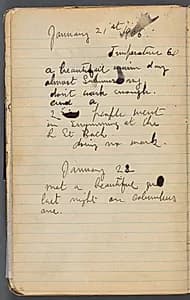 January 21st 1906.
Temperature 60
a beautiful warm day
almost
don't work enough
and a
2 people went
in swimming at the
L St Bath
doing no work.
January 22
met a beautiful
last night on Columbus
ave.